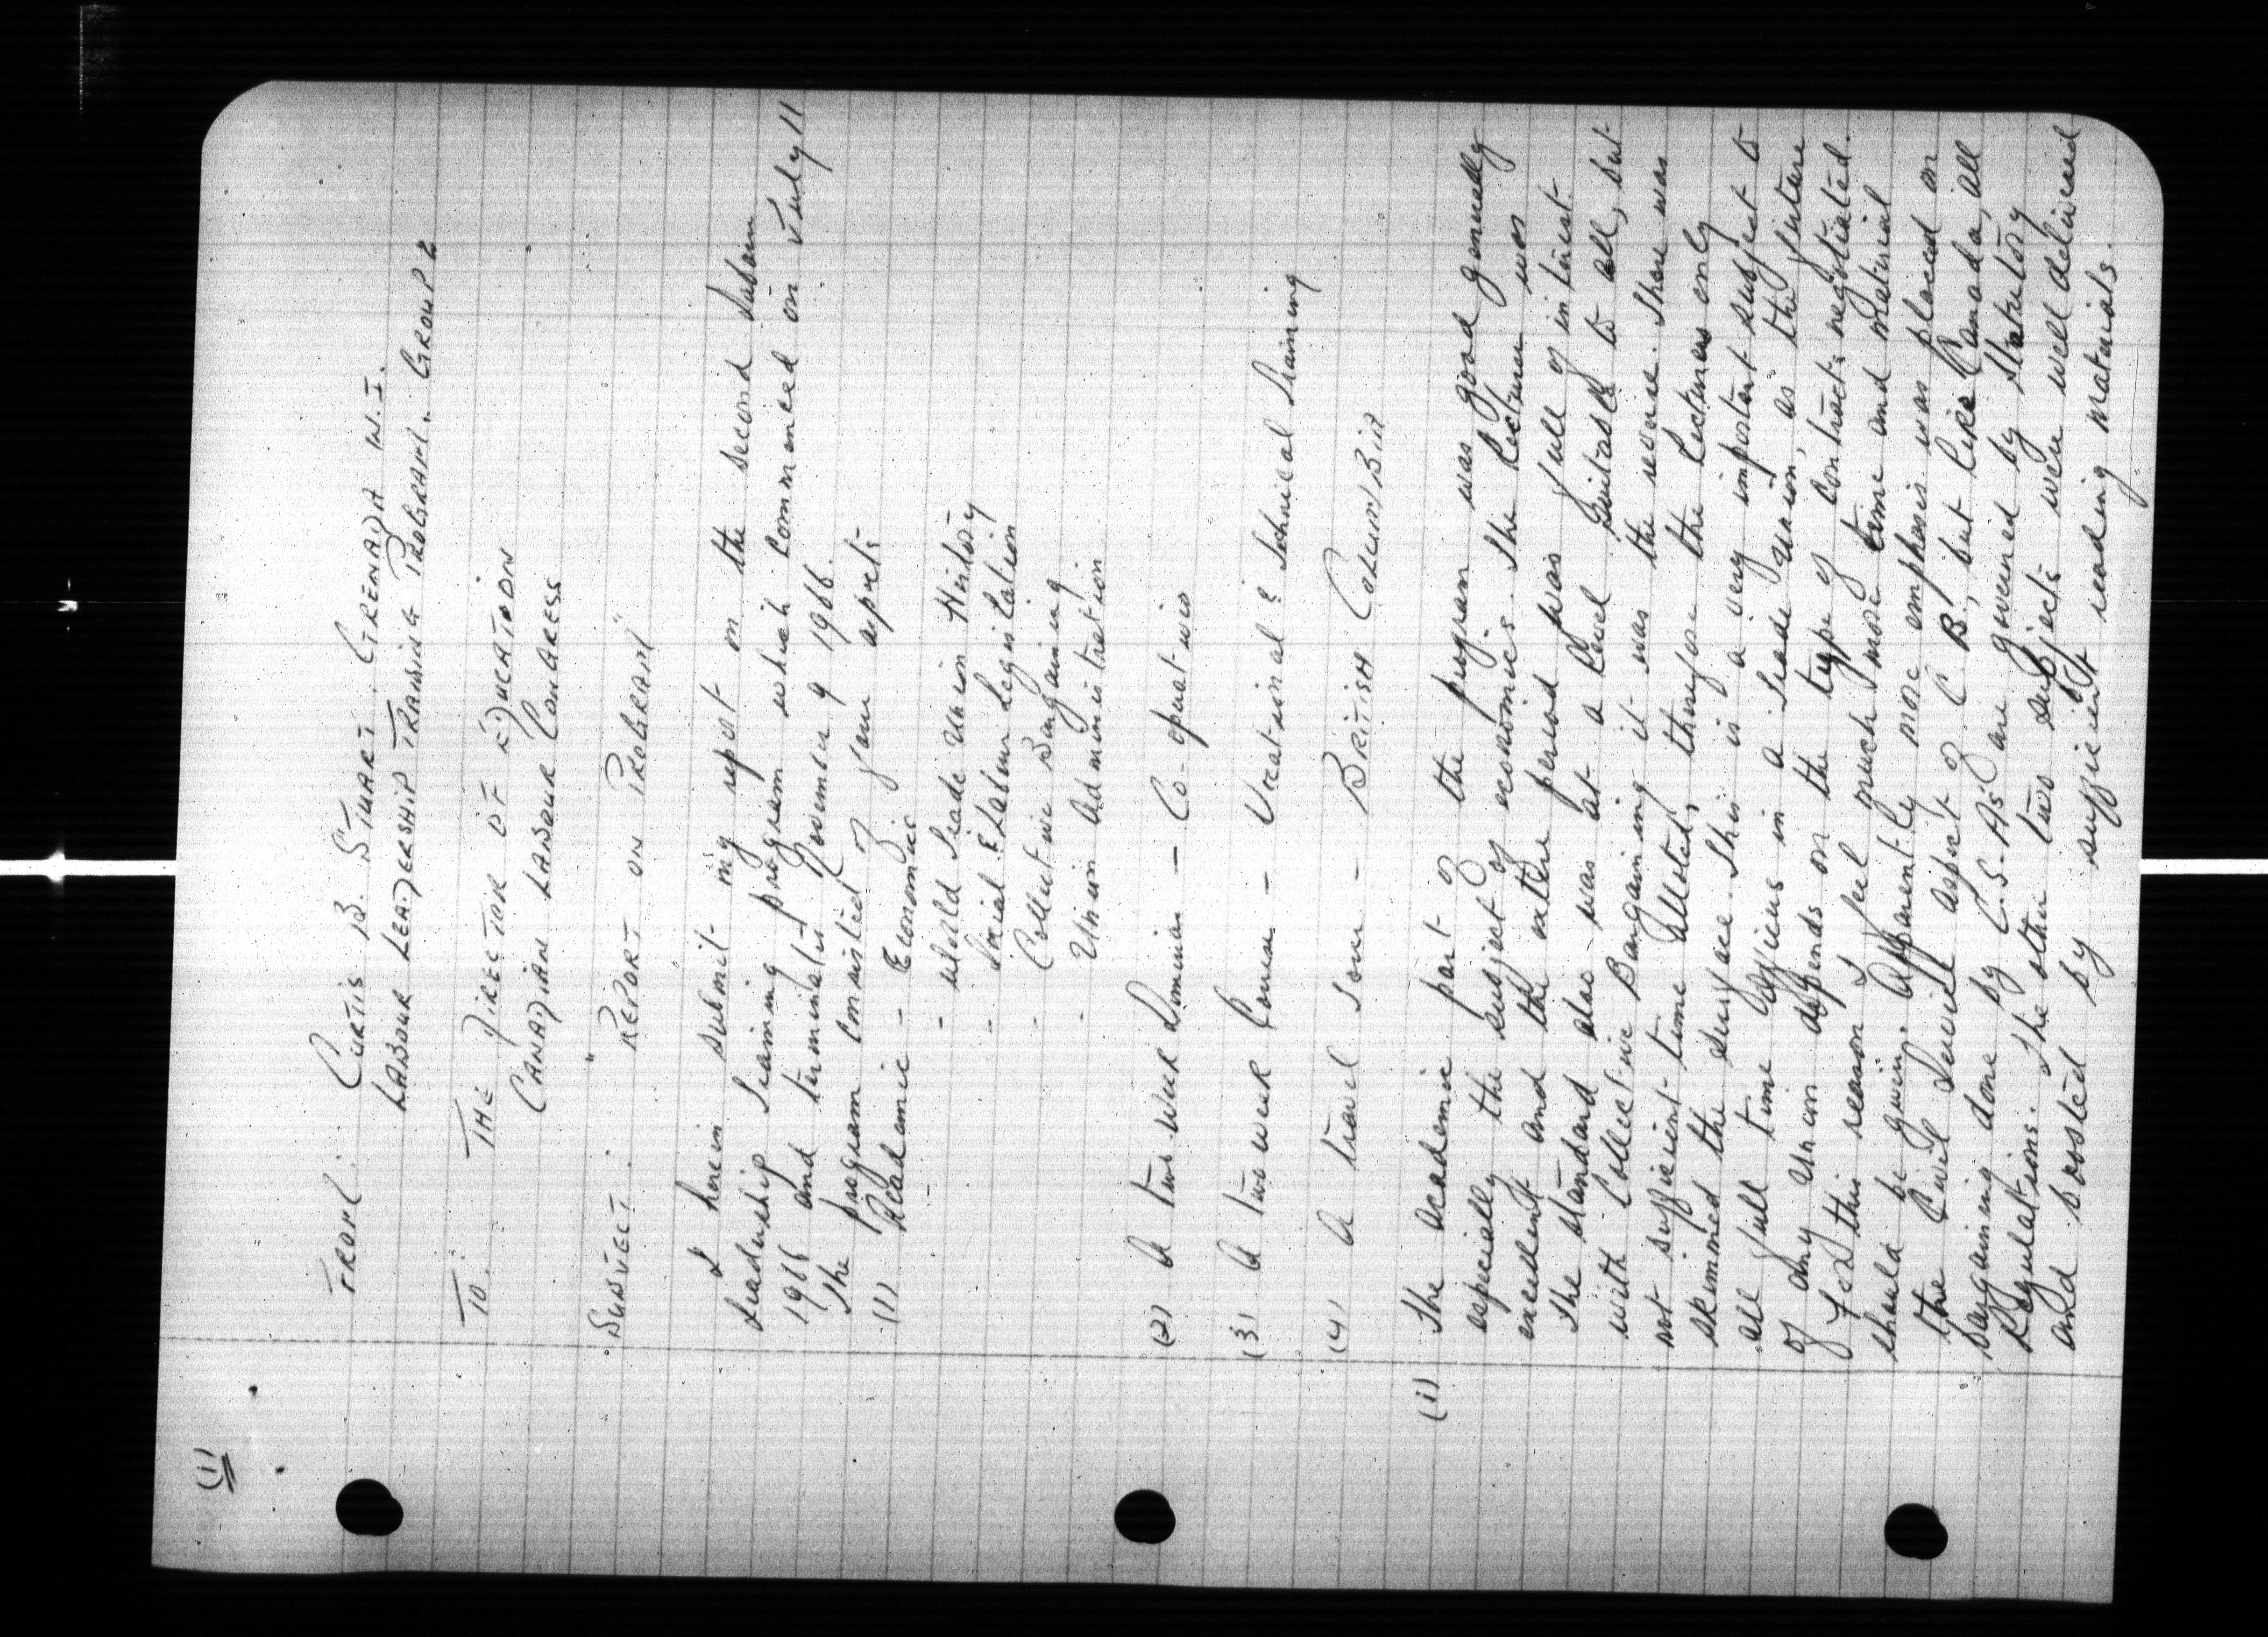 (1)
FROM: CURTIS B. STUART. GRENADA W.I.
LABOUR LEADERSHIP TRAINING PROGRAM. GROUP 2
TO: THE DIRECTOR OF EDUCATION
CANADIAN LABOUR CONGRESS
SUBJECT: "REPORT ON PROGRAM"
I herein submit my report on the second Labour
Leadership Training program which commenced on July 11
1966 and terminates November 9 1966.
The program consisted of four aspects
(1) Academic - Economic
- World Trade Union History
- Social & Labour Legislation
- Collective Bargaining
- Union Administration
(2) A two week Seminar - Co-operatives
(3) A two week Course - Vocational & Technical Training
(4) A travel Tour - BRITISH COLUMBIA
(i) The academic part of the program was good generally
especially the subject of economics. The Lecturer was
excellent and the entire period was full of interest.
The standard also was at a level suitable to all, but
with Collective Bargaining it was the reverse. There was
not sufficient time allotted, therefore the Lecturers only
skimmed the surface. This is a very important subject to
all full time officers in a Trade Union, as the future
of any Union depends on the type of contracts negotiated.
For this reason I feel much more time and material
should be given. Apparently more emphasis was placed on
the Civil Service aspect of C B, but like Canada, all
bargaining done by C.S.As are governed by Statutory
Regulations. The other two subjects were well delivered
and boosted by sufficient reading materials.